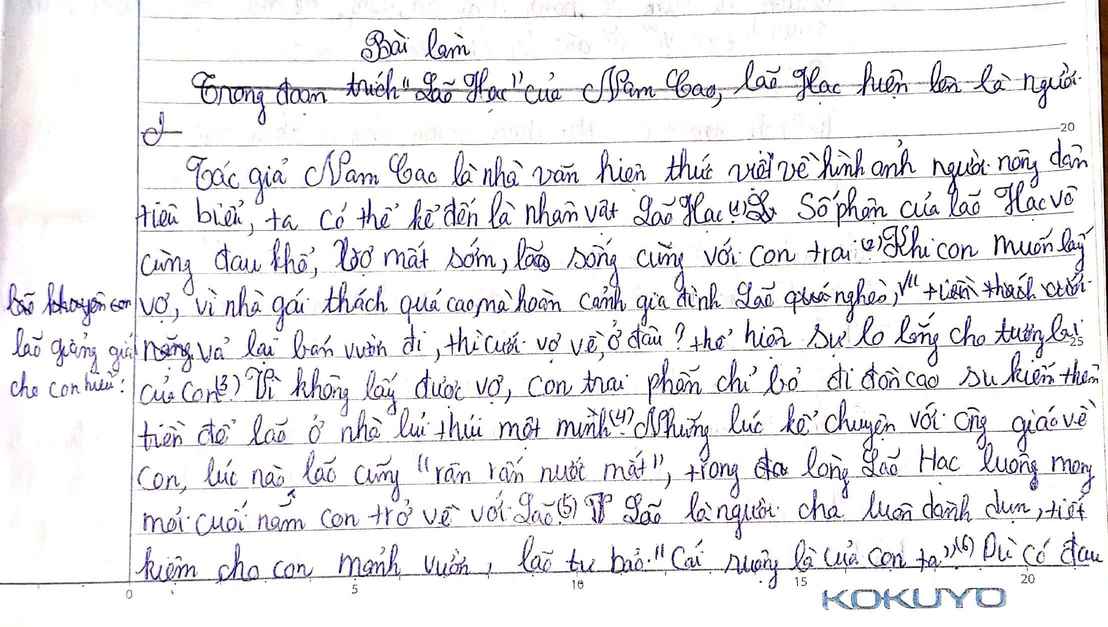 Bài làm
Trong đoạn trích "Lão Hạc" của Nam Cao, lão Hạc hiện lên là người
20
Tác giả Nam Cao là nhà văn hiện thực viết về hình ảnh người nông dân
tiêu biểu, ta có thể kể đến là nhân vật Lão Hạc (1) Số phận của lão Hạc vô
cùng đau khổ, vợ mất sớm, lão sống cùng với con trai (2) Khi con muốn lấy
vợ, vì nhà gái thách quá cao mà hoàn cảnh gia đình Lão quá nghèo, tiền thách cưới
lão khuyên con
lão giảng giải
cho con hiểu:
nặng vả lại bán vườn đi, thì cưới vợ về, ở đâu? thể hiện sự lo lắng cho tương lai
25
của con (3) Vì không lấy được vợ, con trai phẫn chí bỏ đi đồn cao su kiếm thêm
tiền để lão ở nhà lủi thủi một mình (4) Những lúc kể chuyện với ông giáo về
con, lúc nào lão cũng "rân rấn nước mắt", trong lòng Lão Hạc luông mong
mỏi cuối năm con trở về với Lão (5) Lão là người cha luôn dành dụm, tiết
kiệm cho con mảnh vườn, lão tự bảo "Cái vườn là của con ta" (6) Dù có đau
0 5 10 15 20
KOKUYO